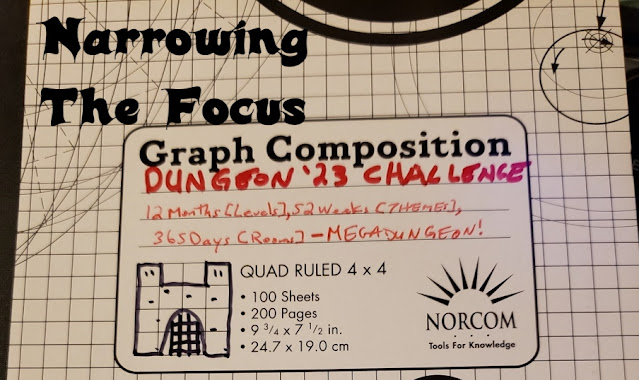 Narrowing
The Focus
Graph Composition
DUNGEON '23 CHALLENGE
12 Months [Levels], 52 Weeks [THEMES],
365 Days [Rooms] - MEGADUNGEON!
QUAD RULED 4 x 4
• 100 Sheets
• 200 Pages
• 9 3/4 x 7 1/2 in.
• 24.7 x 19.0 cm
NORCOM
Tools For Knowledge